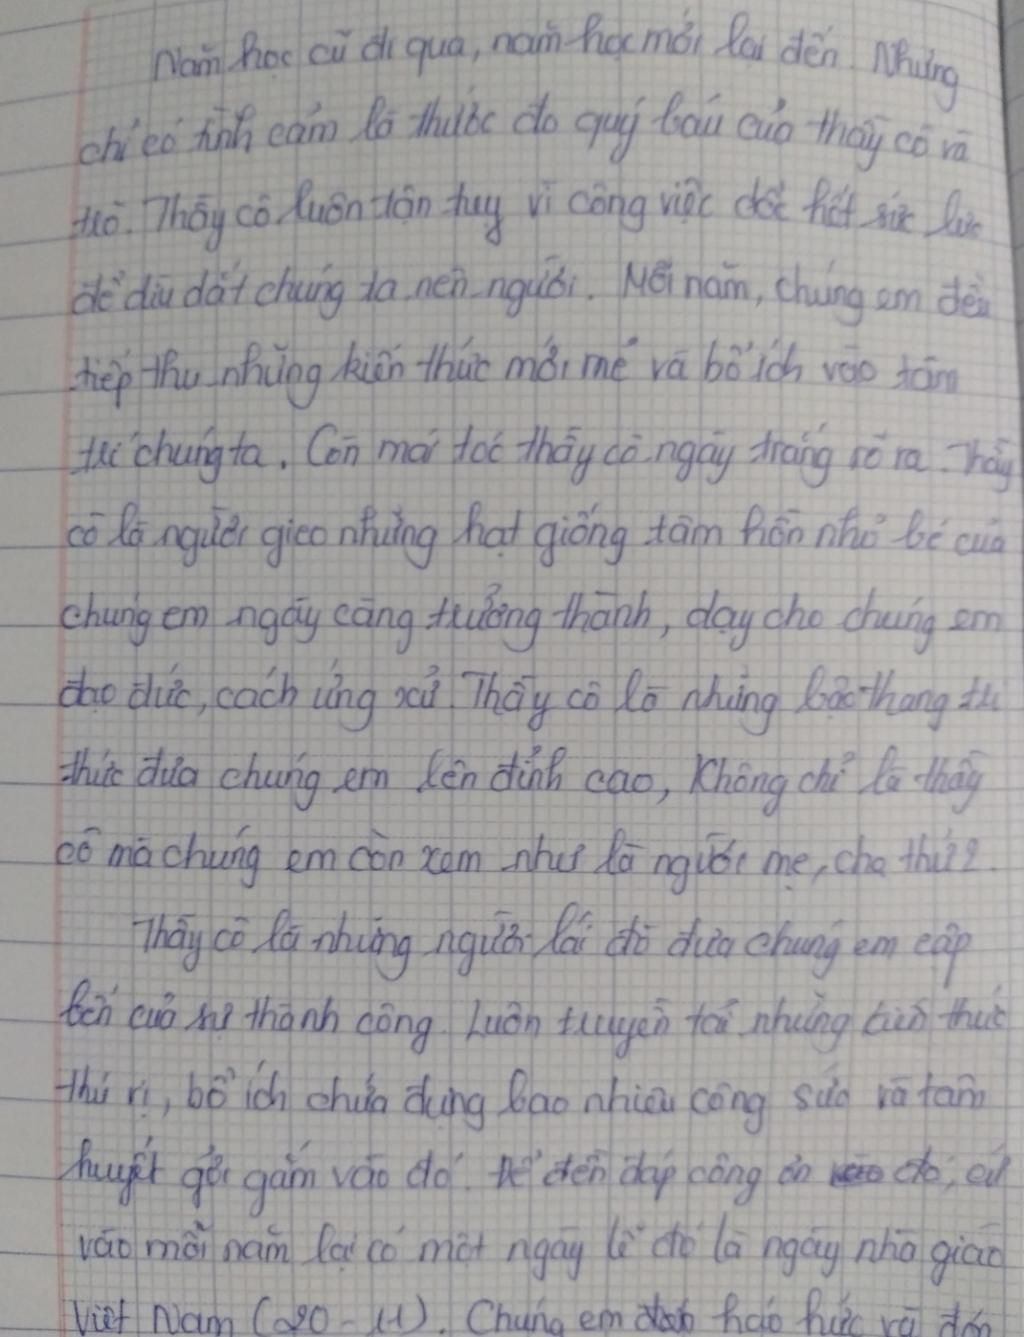 Năm học cũ đi qua, năm học mới lại đến. Nhưng
chỉ có tình cảm là thước đo quý báu của thầy cô và
trò. Thầy cô luôn tận tuỵ vì công việc dốc hết sức lực
để dìu dắt chúng ta nên người. Mỗi năm, chúng em đều
tiếp thu những kiến thức mới mẻ và bổ ích vào tâm
trí chúng ta. Còn mái tóc thầy cô ngày trắng rõ ra. Thầy
cô là người gieo những hạt giống tâm hồn nhỏ bé của
chúng em ngày càng trưởng thành, dạy cho chúng em
đạo đức, cách ứng xử. Thầy cô là những bậc thang tri
thức đưa chúng em lên đỉnh cao, Không chỉ là thầy
cô mà chúng em còn xem như là người mẹ, cha thứ 2.
Thầy cô là những người lái đò đưa chúng em cập
bến của sự thành công. Luôn truyền tải những kiến thức
thú vị, bổ ích chứa đựng bao nhiêu công sức và tâm
huyết gửi gắm vào đó. Để đền đáp công ơn đó, cứ
vào mỗi năm lại có một ngày lễ đó là ngày nhà giáo
Việt Nam (20 - 11). Chúng em háo hức và đón